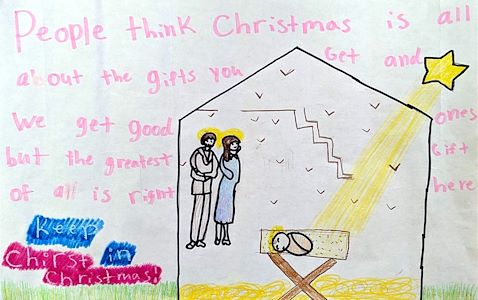 People think Christmas is all
about the gifts you Get and
We get good ones
but the greatest Gift
of all is right here
Keep
Chirst in
Christmas!